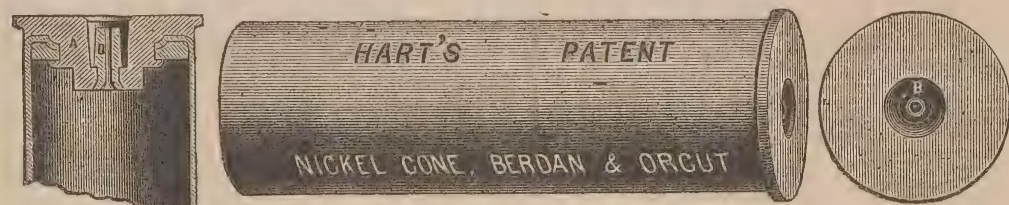 A
HART'S PATENT
NICKEL CONE, BERDAN & ORCUT
B